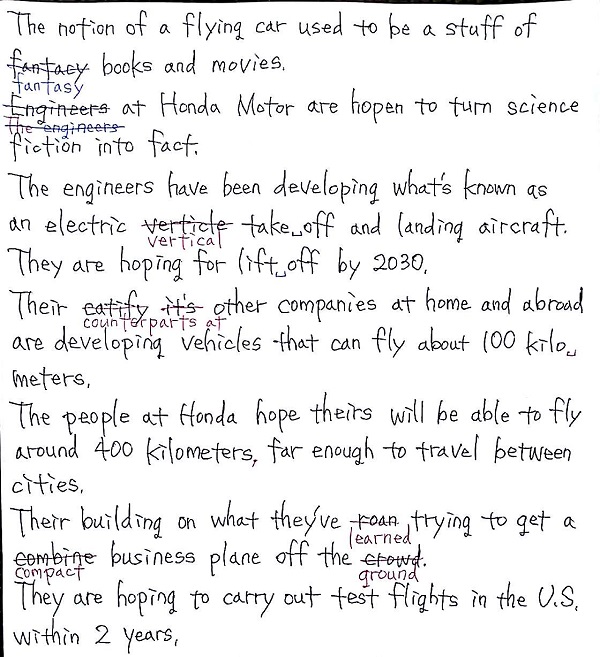 The notion of a flying car used to be a stuff of
fantacy books and movies.
fantasy
Engineers at Honda Motor are hopen to turn science
the engineers
fiction into fact.
The engineers have been developing what's known as
an electric verticle take off and landing aircraft.
vertical
They are hoping for lift off by 2030.
Their eatify it's other companies at home and abroad
counterparts at
are developing vehicles that can fly about 100 kilo
meters.
The people at Honda hope theirs will be able to fly
around 400 kilometers, far enough to travel between
cities.
Their building on what they've roan, trying to get a
learned
combine business plane off the crowd.
compact ground
They are hoping to carry out test flights in the U.S.
within 2 years.